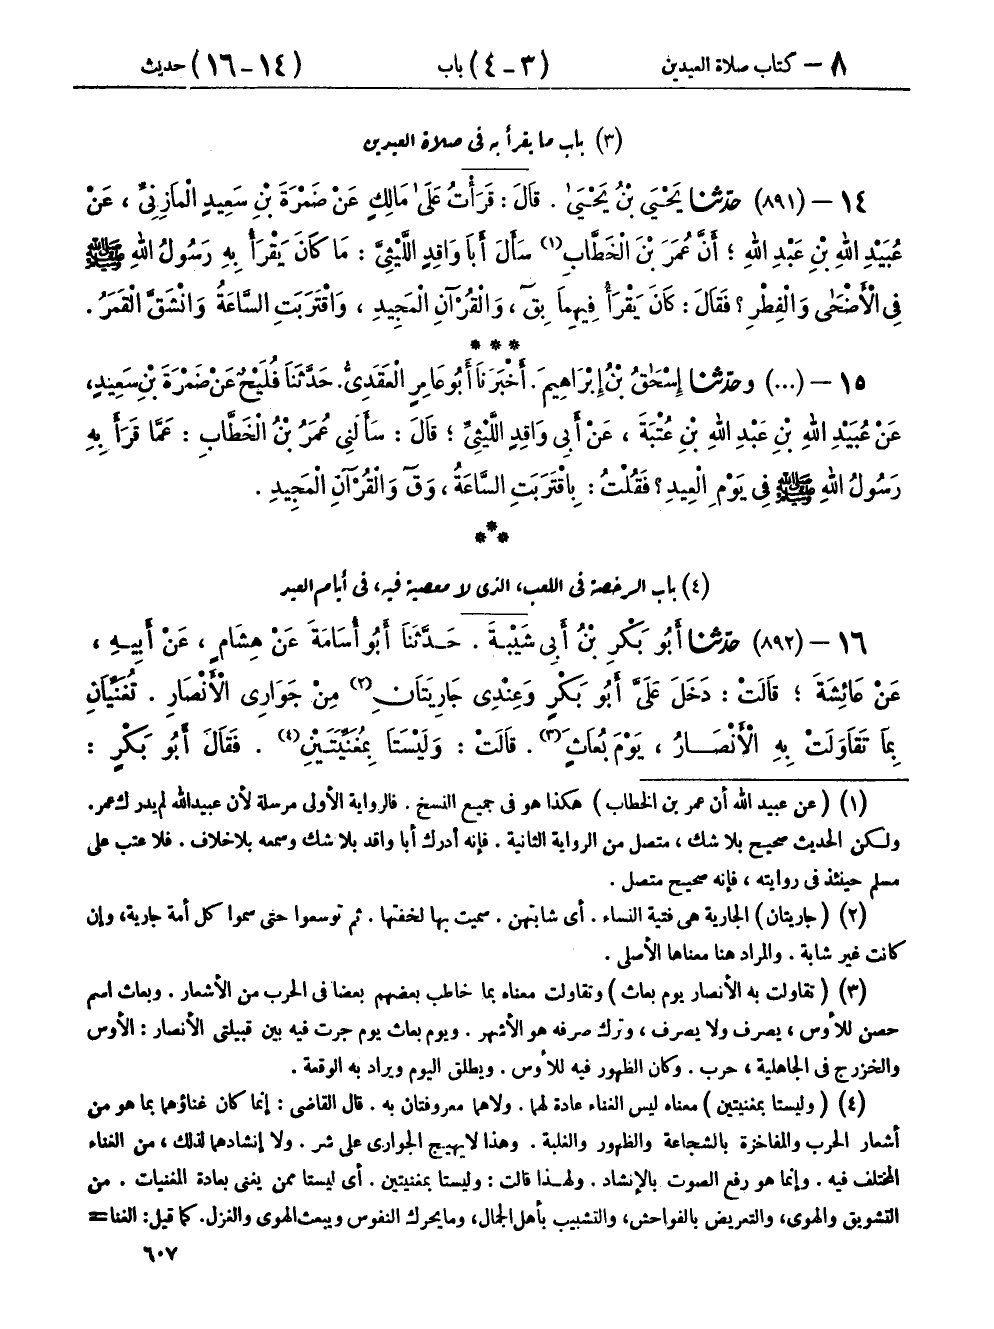 ٨ – كتاب صلاة العيدين (٣-٤) باب (١٤-١٦) حديث
(٣) باب ما يقرأ به فى صلاة العيدين
١٤ – (٨٩١) حدّثنا يَحْيَى بْنُ يَحْيَىٰ . قَالَ : قَرَأْتُ عَلَىٰ مَالِكٍ عَنْ ضَمْرَةَ بْنِ سَعِيدٍ الْمَازِنِيِّ ، عَنْ
عُبَيْدِ اللهِ بْنِ عَبْدِ اللهِ ؛ أَنَّ عُمَرَ بْنَ الْخَطَّابِ(١) سَأَلَ أَبَا وَاقِدٍ اللَّيْثِيَّ : مَا كَانَ يَقْرَأُ بِهِ رَسُولُ اللهِ ﷺ
فِي الْأَضْحَىٰ وَالْفِطْرِ ؟ فَقَالَ : كَانَ يَقْرَأُ فِيهِمَا بِقٓ ، وَالْقُرْآنِ الْمَجِيدِ ، وَاقْتَرَبَتِ السَّاعَةُ وَانْشَقَّ الْقَمَرُ .
* * *
١٥ – (...) وحدّثنا إِسْحَٰقُ بْنُ إِبْرَاهِيمَ. أَخْبَرَنَا أَبُو عَامِرٍ الْعَقَدِيُّ. حَدَّثَنَا فُلَيْحٌ عَنْ ضَمْرَةَ بْنِ سَعِيدٍ،
عَنْ عُبَيْدِ اللهِ بْنِ عَبْدِ اللهِ بْنِ عُتْبَةَ ، عَنْ أَبِي وَاقِدٍ اللَّيْثِيِّ ؛ قَالَ : سَأَلَنِي عُمَرُ بْنُ الْخَطَّابِ : عَمَّا قَرَأَ بِهِ
رَسُولُ اللهِ ﷺ فِي يَوْمِ الْعِيدِ ؟ فَقُلْتُ : بِاقْتَرَبَتِ السَّاعَةُ ، وَقٓ وَالْقُرْآنِ الْمَجِيدِ .
* * *
(٤) باب الرخصة فى اللعب، الذى لا معصية فيه، فى أيام العيد
١٦ – (٨٩٢) حدّثنا أَبُو بَكْرِ بْنُ أَبِي شَيْبَةَ . حَدَّثَنَا أَبُو أُسَامَةَ عَنْ هِشَامٍ ، عَنْ أَبِيهِ ،
عَنْ عَائِشَةَ ؛ قَالَتْ : دَخَلَ عَلَيَّ أَبُو بَكْرٍ وَعِنْدِي جَارِيَتَانِ(٢) مِنْ جَوَارِي الْأَنْصَارِ . تُغَنِّيَانِ
بِمَا تَقَاوَلَتْ بِهِ الْأَنْصَارُ ، يَوْمَ بُعَاثَ(٣) . قَالَتْ : وَلَيْسَتَا بِمُغَنِّيَتَيْنِ(٤) . فَقَالَ أَبُو بَكْرٍ :
(١) (عن عبيد الله أن عمر بن الخطاب) هكذا هو فى جميع النسخ . فالرواية الأولى مرسلة لأن عبيدالله لم يدرك عمر.
ولكن الحديث صحيح بلا شك ، متصل من الرواية الثانية . فإنه أدرك أبا واقد بلا شك وسمعه بلا خلاف . فلا عتب على
مسلم حينئذ فى روايته ، فإنه صحيح متصل .
(٢) (جاريتان) الجارية هى فتية النساء . أى شابتهن . سميت بها لخفتها . ثم توسعوا حتى سموا كل أمة جارية، وإن
كانت غير شابة . والمراد هنا معناها الأصلى .
(٣) (تقاولت به الأنصار يوم بعاث) وتقاولت معناه بما خاطب بعضهم بعضا فى الحرب من الأشعار . وبعاث اسم
حصن للأوس ، يصرف ولا يصرف ، وترك صرفه هو الأشهر . ويوم بعاث يوم جرت فيه بين قبيلتى الأنصار : الأوس
والخزرج فى الجاهلية ، حرب . وكان الظهور فيه للأوس . ويطلق اليوم ويراد به الوقعة .
(٤) (وليستا بمغنيتين) معناه ليس الغناء عادة لهما . ولاهما معروفتان به . قال القاضى : إنما كان غناؤهما بما هو من
أشعار الحرب والمفاخرة بالشجاعة والظهور والغلبة . وهذا لا يهيج الجوارى على شر . ولا إنشادهما لذلك ، من الغناء
المختلف فيه . وإنما هو رفع الصوت بالإنشاد . ولهذا قالت : وليستا بمغنيتين . أى ليستا ممن يغنى بعادة المغنيات . من
التشويق والهوى، والتعريض بالفواحش، والتشبيب بأهل الجمال، وما يحرك النفوس ويبعث الهوى والغزل. كما قيل: الغنا =
٦٠٧